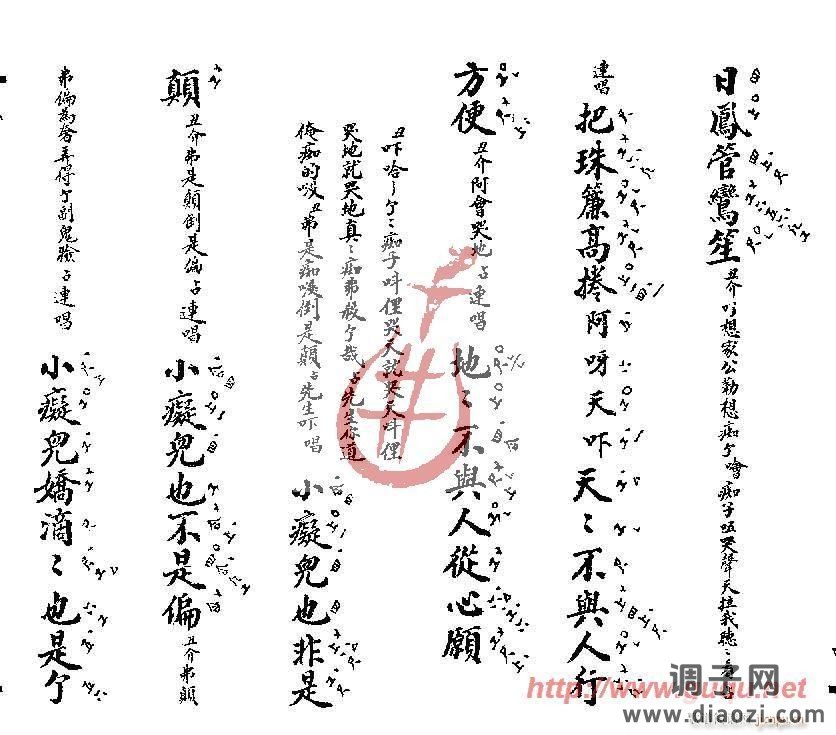 日鳳管鸞笙丑介吓想家公勒想痴个嚕痴子哭聲天拉我聽
連唱把珠簾高捲阿呀天吓天〻不與人行
方便丑介阿會哭地占連唱地〻不與人從心願
丑吓哈〻个〻痴子呌俚哭天就哭天呌俚
哭地就哭地真〻痴弗殺个哉占先生你道
俺痴的唆丑弗是痴唆倒是顛占先生吓唱小癡兒也非是
顛丑介弗是顛倒是偏占連唱小癡兒也不是偏丑介弗顛
弗偏為啥弄得个副鬼臉占連唱小癡兒嬌滴〻也是个
http://www.guqu.net
调子网
www.diaozi.com